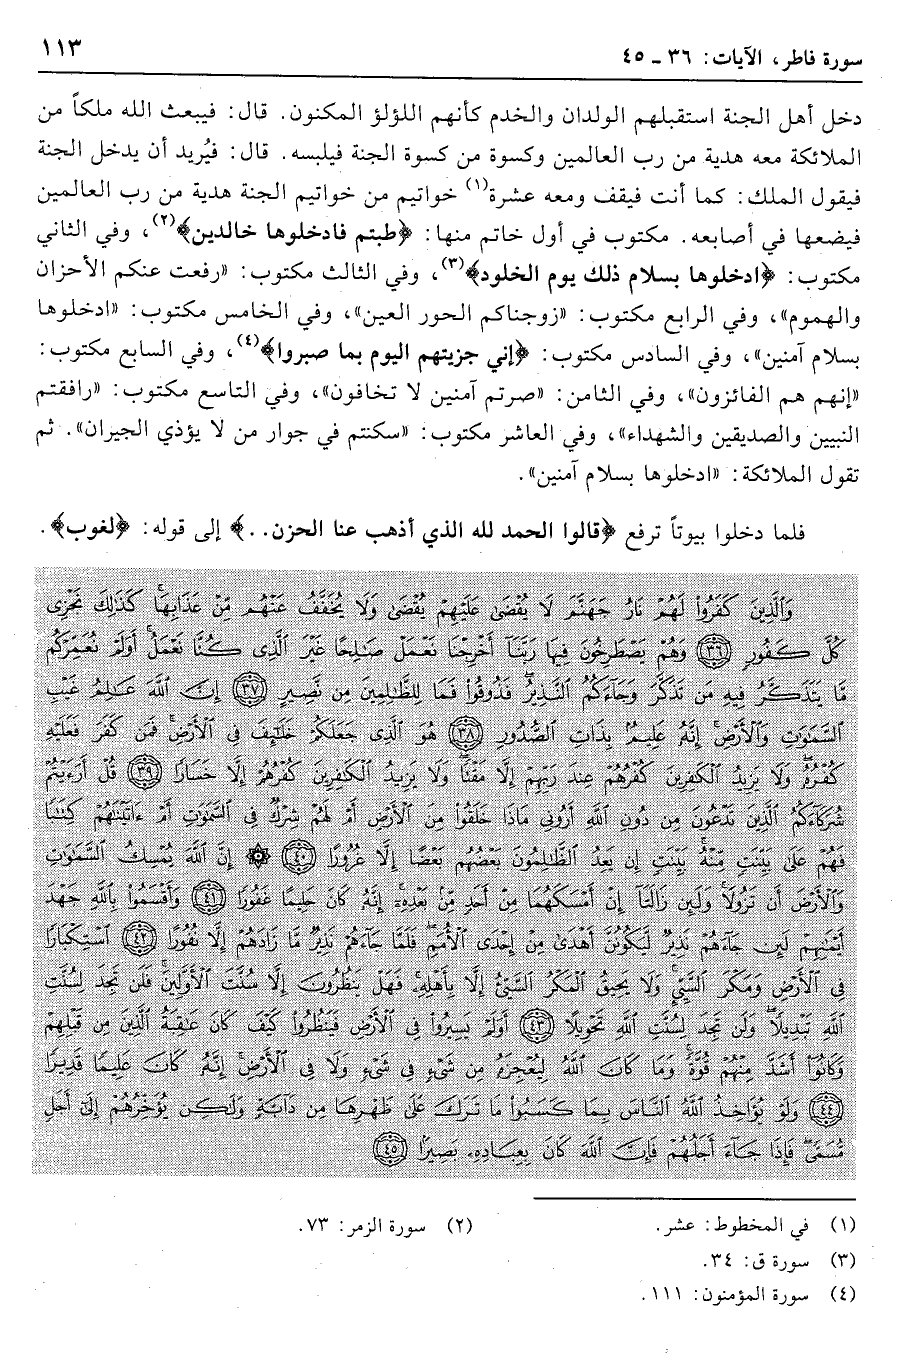 سورة فاطر، الآيات: ٣٦ ـ ٤٥
١١٣
دخل أهل الجنة استقبلهم الولدان والخدم كأنهم اللؤلؤ المكنون. قال: فيبعث الله ملكاً من
الملائكة معه هدية من رب العالمين وكسوة من كسوة الجنة فيلبسه. قال: فيُريد أن يدخل الجنة
فيقول الملك: كما أنت فيقف ومعه عشرة(١) خواتيم من خواتيم الجنة هدية من رب العالمين
فيضعها في أصابعه. مكتوب في أول خاتم منها: ﴿طبتم فادخلوها خالدين﴾(٢)، وفي الثاني
مكتوب: ﴿ادخلوها بسلام ذلك يوم الخلود﴾(٣)، وفي الثالث مكتوب: «رفعت عنكم الأحزان
والهموم»، وفي الرابع مكتوب: «زوجناكم الحور العين»، وفي الخامس مكتوب: «ادخلوها
بسلام آمنين»، وفي السادس مكتوب: ﴿إني جزيتهم اليوم بما صبروا﴾(٤)، وفي السابع مكتوب:
«إنهم هم الفائزون»، وفي الثامن: «صرتم آمنين لا تخافون»، وفي التاسع مكتوب: «رافقتم
النبيين والصديقين والشهداء»، وفي العاشر مكتوب: «سكنتم في جوار من لا يؤذي الجيران». ثم
تقول الملائكة: «ادخلوها بسلام آمنين».
فلما دخلوا بيوتاً ترفع ﴿قالوا الحمد لله الذي أذهب عنا الحزن. .﴾ إلى قوله: ﴿لغوب﴾.
وَٱلَّذِينَ كَفَرُوا۟ لَهُمْ نَارُ جَهَنَّمَ لَا يُقْضَىٰ عَلَيْهِمْ فَيَمُوتُوا۟ وَلَا يُخَفَّفُ عَنْهُم مِّنْ عَذَابِهَا ۚ كَذَٰلِكَ نَجْزِى
كُلَّ كَفُورٍ ﴿٣٦﴾ وَهُمْ يَصْطَرِخُونَ فِيهَا رَبَّنَآ أَخْرِجْنَا نَعْمَلْ صَٰلِحًا غَيْرَ ٱلَّذِى كُنَّا نَعْمَلُ ۚ أَوَلَمْ نُعَمِّرْكُم
مَّا يَتَذَكَّرُ فِيهِ مَن تَذَكَّرَ وَجَآءَكُمُ ٱلنَّذِيرُ ۖ فَذُوقُوا۟ فَمَا لِلظَّٰلِمِينَ مِن نَّصِيرٍ ﴿٣٧﴾ إِنَّ ٱللَّهَ عَٰلِمُ غَيْبِ
ٱلسَّمَٰوَٰتِ وَٱلْأَرْضِ ۚ إِنَّهُۥ عَلِيمٌۢ بِذَاتِ ٱلصُّدُورِ ﴿٣٨﴾ هُوَ ٱلَّذِى جَعَلَكُمْ خَلَٰٓئِفَ فِى ٱلْأَرْضِ ۚ فَمَن كَفَرَ فَعَلَيْهِ
كُفْرُهُۥ ۖ وَلَا يَزِيدُ ٱلْكَٰفِرِينَ كُفْرُهُمْ عِندَ رَبِّهِمْ إِلَّا مَقْتًا ۖ وَلَا يَزِيدُ ٱلْكَٰفِرِينَ كُفْرُهُمْ إِلَّا خَسَارًا ﴿٣٩﴾ قُلْ أَرَءَيْتُمْ
شُرَكَآءَكُمُ ٱلَّذِينَ تَدْعُونَ مِن دُونِ ٱللَّهِ أَرُونِى مَاذَا خَلَقُوا۟ مِنَ ٱلْأَرْضِ أَمْ لَهُمْ شِرْكٌ فِى ٱلسَّمَٰوَٰتِ أَمْ ءَاتَيْنَٰهُمْ كِتَٰبًا
فَهُمْ عَلَىٰ بَيِّنَتٍ مِّنْهُ ۚ بَلْ إِن يَعِدُ ٱلظَّٰلِمُونَ بَعْضُهُم بَعْضًا إِلَّا غُرُورًا ﴿٤٠﴾ ۞ إِنَّ ٱللَّهَ يُمْسِكُ ٱلسَّمَٰوَٰتِ
وَٱلْأَرْضَ أَن تَزُولَا ۚ وَلَئِن زَالَتَآ إِنْ أَمْسَكَهُمَا مِنْ أَحَدٍ مِّنۢ بَعْدِهِۦٓ ۚ إِنَّهُۥ كَانَ حَلِيمًا غَفُورًا ﴿٤١﴾ وَأَقْسَمُوا۟ بِٱللَّهِ جَهْدَ
أَيْمَٰنِهِمْ لَئِن جَآءَهُمْ نَذِيرٌ لَّيَكُونُنَّ أَهْدَىٰ مِنْ إِحْدَى ٱلْأُمَمِ ۖ فَلَمَّا جَآءَهُمْ نَذِيرٌ مَّا زَادَهُمْ إِلَّا نُفُورًا ﴿٤٢﴾ ٱسْتِكْبَارًا
فِى ٱلْأَرْضِ وَمَكْرَ ٱلسَّيِّئِ ۚ وَلَا يَحِيقُ ٱلْمَكْرُ ٱلسَّيِّئُ إِلَّا بِأَهْلِهِۦ ۚ فَهَلْ يَنظُرُونَ إِلَّا سُنَّتَ ٱلْأَوَّلِينَ ۚ فَلَن تَجِدَ لِسُنَّتِ
ٱللَّهِ تَبْدِيلًا ۖ وَلَن تَجِدَ لِسُنَّتِ ٱللَّهِ تَحْوِيلًا ﴿٤٣﴾ أَوَلَمْ يَسِيرُوا۟ فِى ٱلْأَرْضِ فَيَنظُرُوا۟ كَيْفَ كَانَ عَٰقِبَةُ ٱلَّذِينَ مِن قَبْلِهِمْ
وَكَانُوٓا۟ أَشَدَّ مِنْهُمْ قُوَّةً ۚ وَمَا كَانَ ٱللَّهُ لِيُعْجِزَهُۥ مِن شَىْءٍ فِى ٱلسَّمَٰوَٰتِ وَلَا فِى ٱلْأَرْضِ ۚ إِنَّهُۥ كَانَ عَلِيمًا قَدِيرًا
﴿٤٤﴾ وَلَوْ يُؤَاخِذُ ٱللَّهُ ٱلنَّاسَ بِمَا كَسَبُوا۟ مَا تَرَكَ عَلَىٰ ظَهْرِهَا مِن دَآبَّةٍ وَلَٰكِن يُؤَخِّرُهُمْ إِلَىٰٓ أَجَلٍ
مُّسَمًّى ۖ فَإِذَا جَآءَ أَجَلُهُمْ فَإِنَّ ٱللَّهَ كَانَ بِعِبَادِهِۦ بَصِيرًۢا ﴿٤٥﴾
(١) في المخطوط: عشر.
(٢) سورة الزمر: ٧٣.
(٣) سورة ق: ٣٤.
(٤) سورة المؤمنون: ١١١.